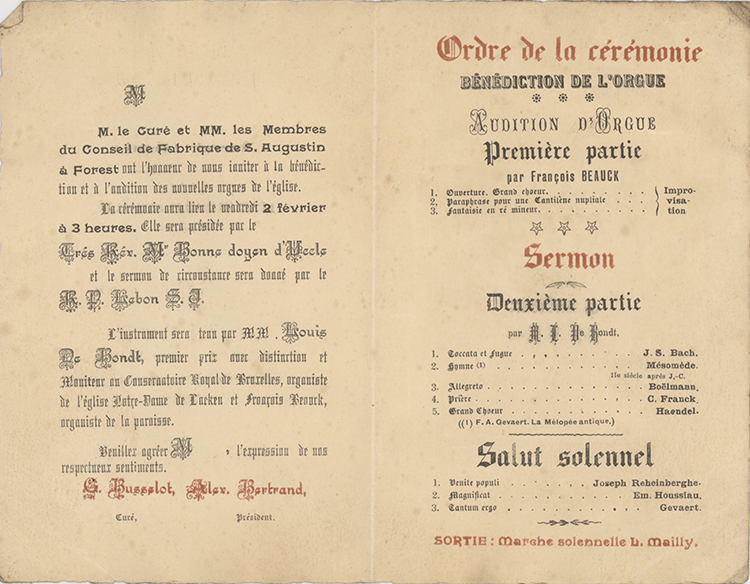 M
M. le Curé et MM. les Membres
du Conseil de Fabrique de S. Augustin
à Forest ont l'honneur de vous inviter à la bénédic-
tion et à l'audition des nouvelles orgues de l'église.
La cérémonie aura lieu le vendredi 2 février
à 3 heures. Elle sera présidée par le
Très Rév. Mr Bonne doyen d'Uccle
et le sermon de circonstance sera donné par le
R. P. Lebon S. J.
L'instrument sera tenu par MM. Louis
De Bondt, premier prix avec distinction et
Moniteur au Conservatoire Royal de Bruxelles, organiste
de l'église Notre-Dame de Laeken et François Beauck,
organiste de la paroisse.
Veuillez agréer M , l'expression de nos
respectueux sentiments.
G. Busselot, Alex. Bertrand,
Curé, Président.
Ordre de la cérémonie
BÉNÉDICTION DE L'ORGUE
AUDITION D'ORGUE
Première partie
par François BEAUCK
1. Ouverture. Grand chœur. . . . . . . . . . } Impro-
2. Paraphrase pour une Cantilène nuptiale . . } visa-
3. Fantaisie en ré mineur. . . . . . . . . . } tion
Sermon
Deuxième partie
par M. L. De Bondt.
1. Toccata et Fugue . . . . . . . . J. S. Bach.
2. Hymne (1) . . . . . . . . . . Mésomède.
IIe siècle après J.-C.
3. Allegreto . . . . . . . . . . . Boëlmann.
4. Prière. . . . . . . . . . . . . C. Franck.
5. Grand Choeur . . . . . . . . . . Haendel.
((1) F. A. Gevaert. La Mélopée antique.)
Salut solennel
1. Venite populi . . . . . Joseph Reheinberghe.
2. Magnificat . . . . . . . . Em. Houssiau.
3. Tantum ergo . . . . . . . . . . Gevaert.
SORTIE : Marche solennelle L. Mailly.